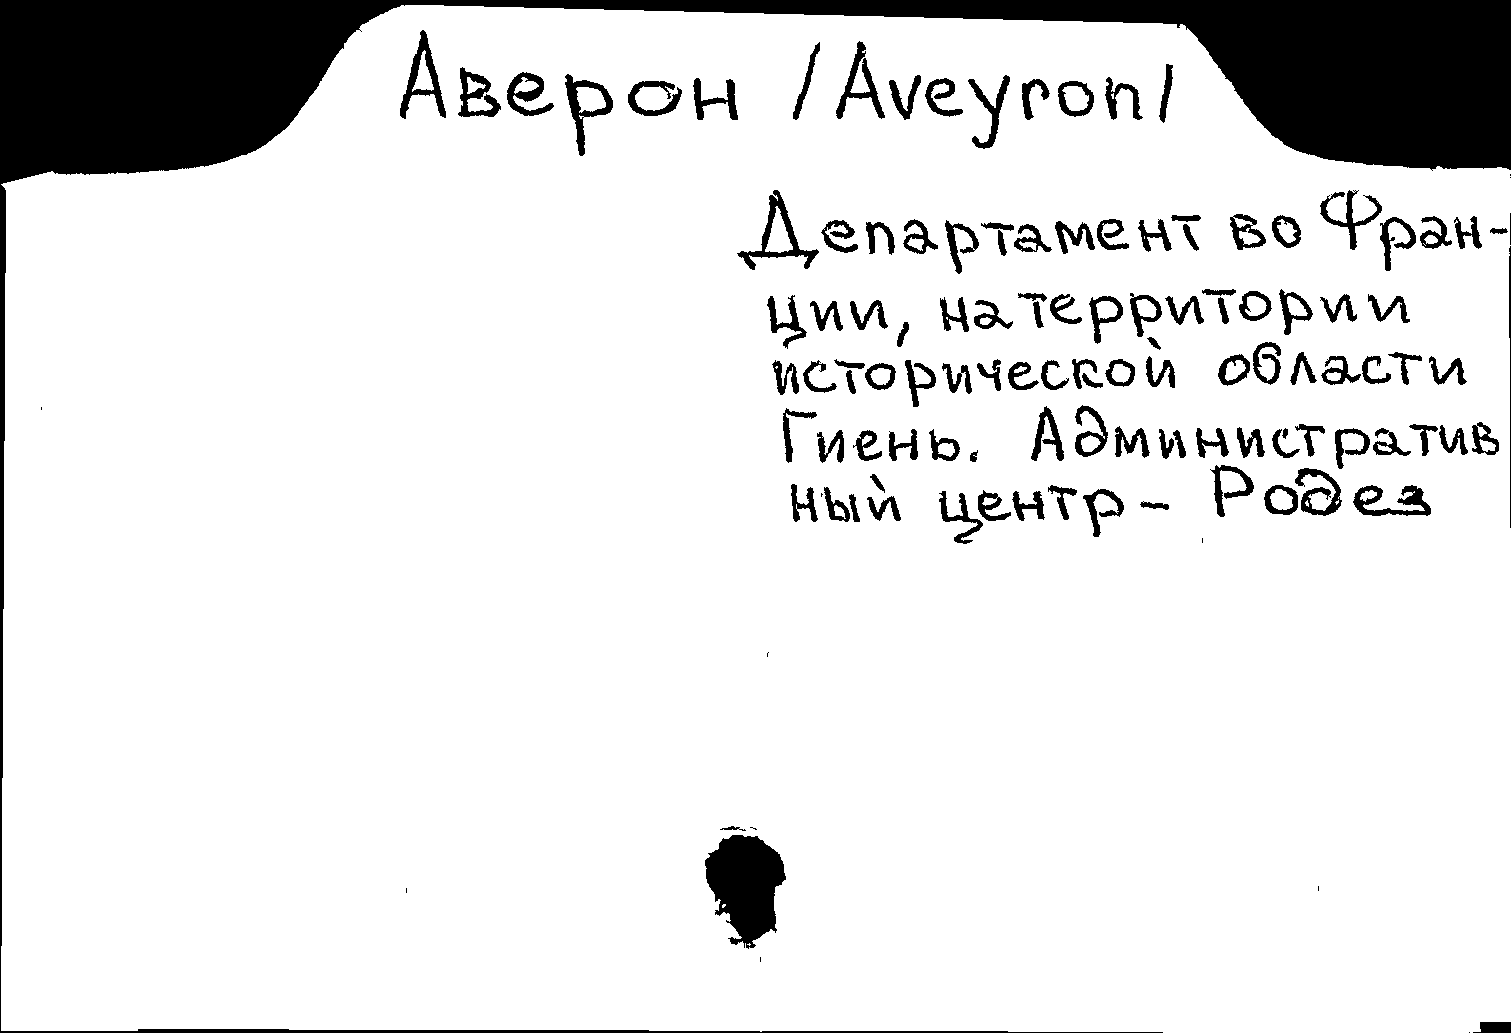 Аверон /Aveyron/
Департамент во Фран-
ции, на территории
исторической области
Гиень. Административ
ный центр - Родез